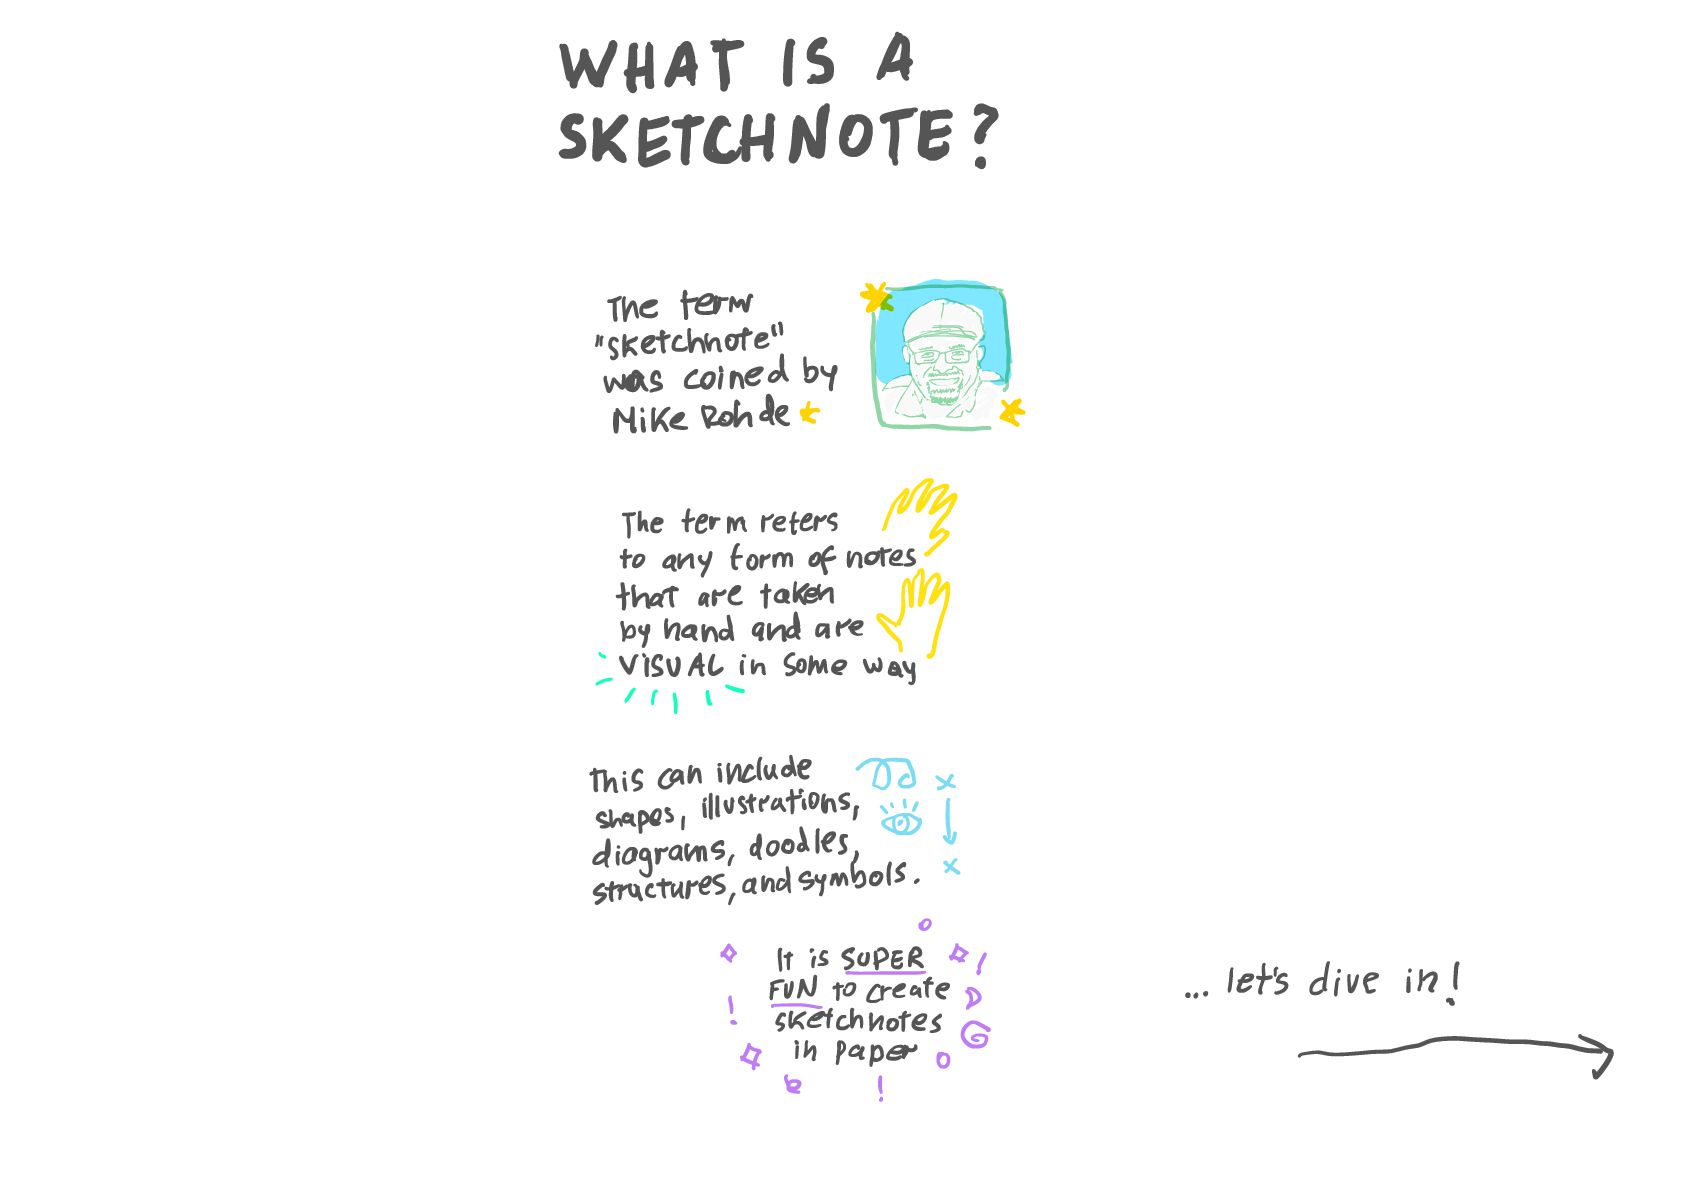 WHAT IS A
SKETCHNOTE?
The term
"sketchnote"
was coined by
Mike Rohde
The term refers
to any form of notes
that are taken
by hand and are
VISUAL in some way
This can include
shapes, illustrations,
diagrams, doodles,
structures, and symbols.
It is SUPER
FUN to create
sketchnotes
in paper
... let's dive in!